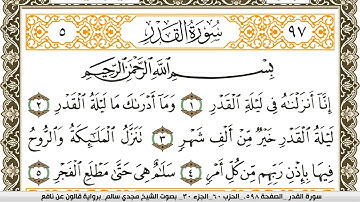 ٩٧ سُورَةُ الْقَدْرِ ٥
بِسْمِ اللَّهِ الرَّحْمَٰنِ الرَّحِيمِ
إِنَّا أَنزَلْنَٰهُ فِى لَيْلَةِ الْقَدْرِ ١ وَمَا أَدْرَىٰكَ مَا لَيْلَةُ الْقَدْرِ ٢
لَيْلَةُ الْقَدْرِ خَيْرٌ مِّنْ أَلْفِ شَهْرٍ ٣ تَنَزَّلُ الْمَلَٰٓئِكَةُ وَالرُّوحُ
فِيهَا بِإِذْنِ رَبِّهِم مِّن كُلِّ أَمْرٍ ٤ سَلَٰمٌ هِىَ حَتَّىٰ مَطْلَعِ الْفَجْرِ ٥
سورة القدر _ الصفحة ٥٩٨_ الحزب ٦٠_ الجزء ٣٠ _ بصوت الشيخ مجدي سالم_ برواية قالون عن نافع